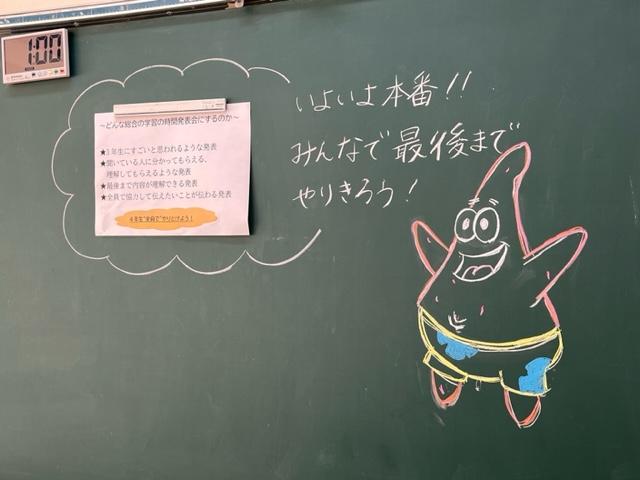 1:00
～どんな総合の学習の時間発表会にするのか～
★3年生にすごいと思われるような発表
★聞いている人に分かってもらえる、
理解してもらえるような発表
★最後まで内容が理解できる発表
★全員で協力して伝えたいことが伝わる発表
4年生"全員で"やりとげよう!
いよいよ本番!!
みんなで最後まで
やりきろう!